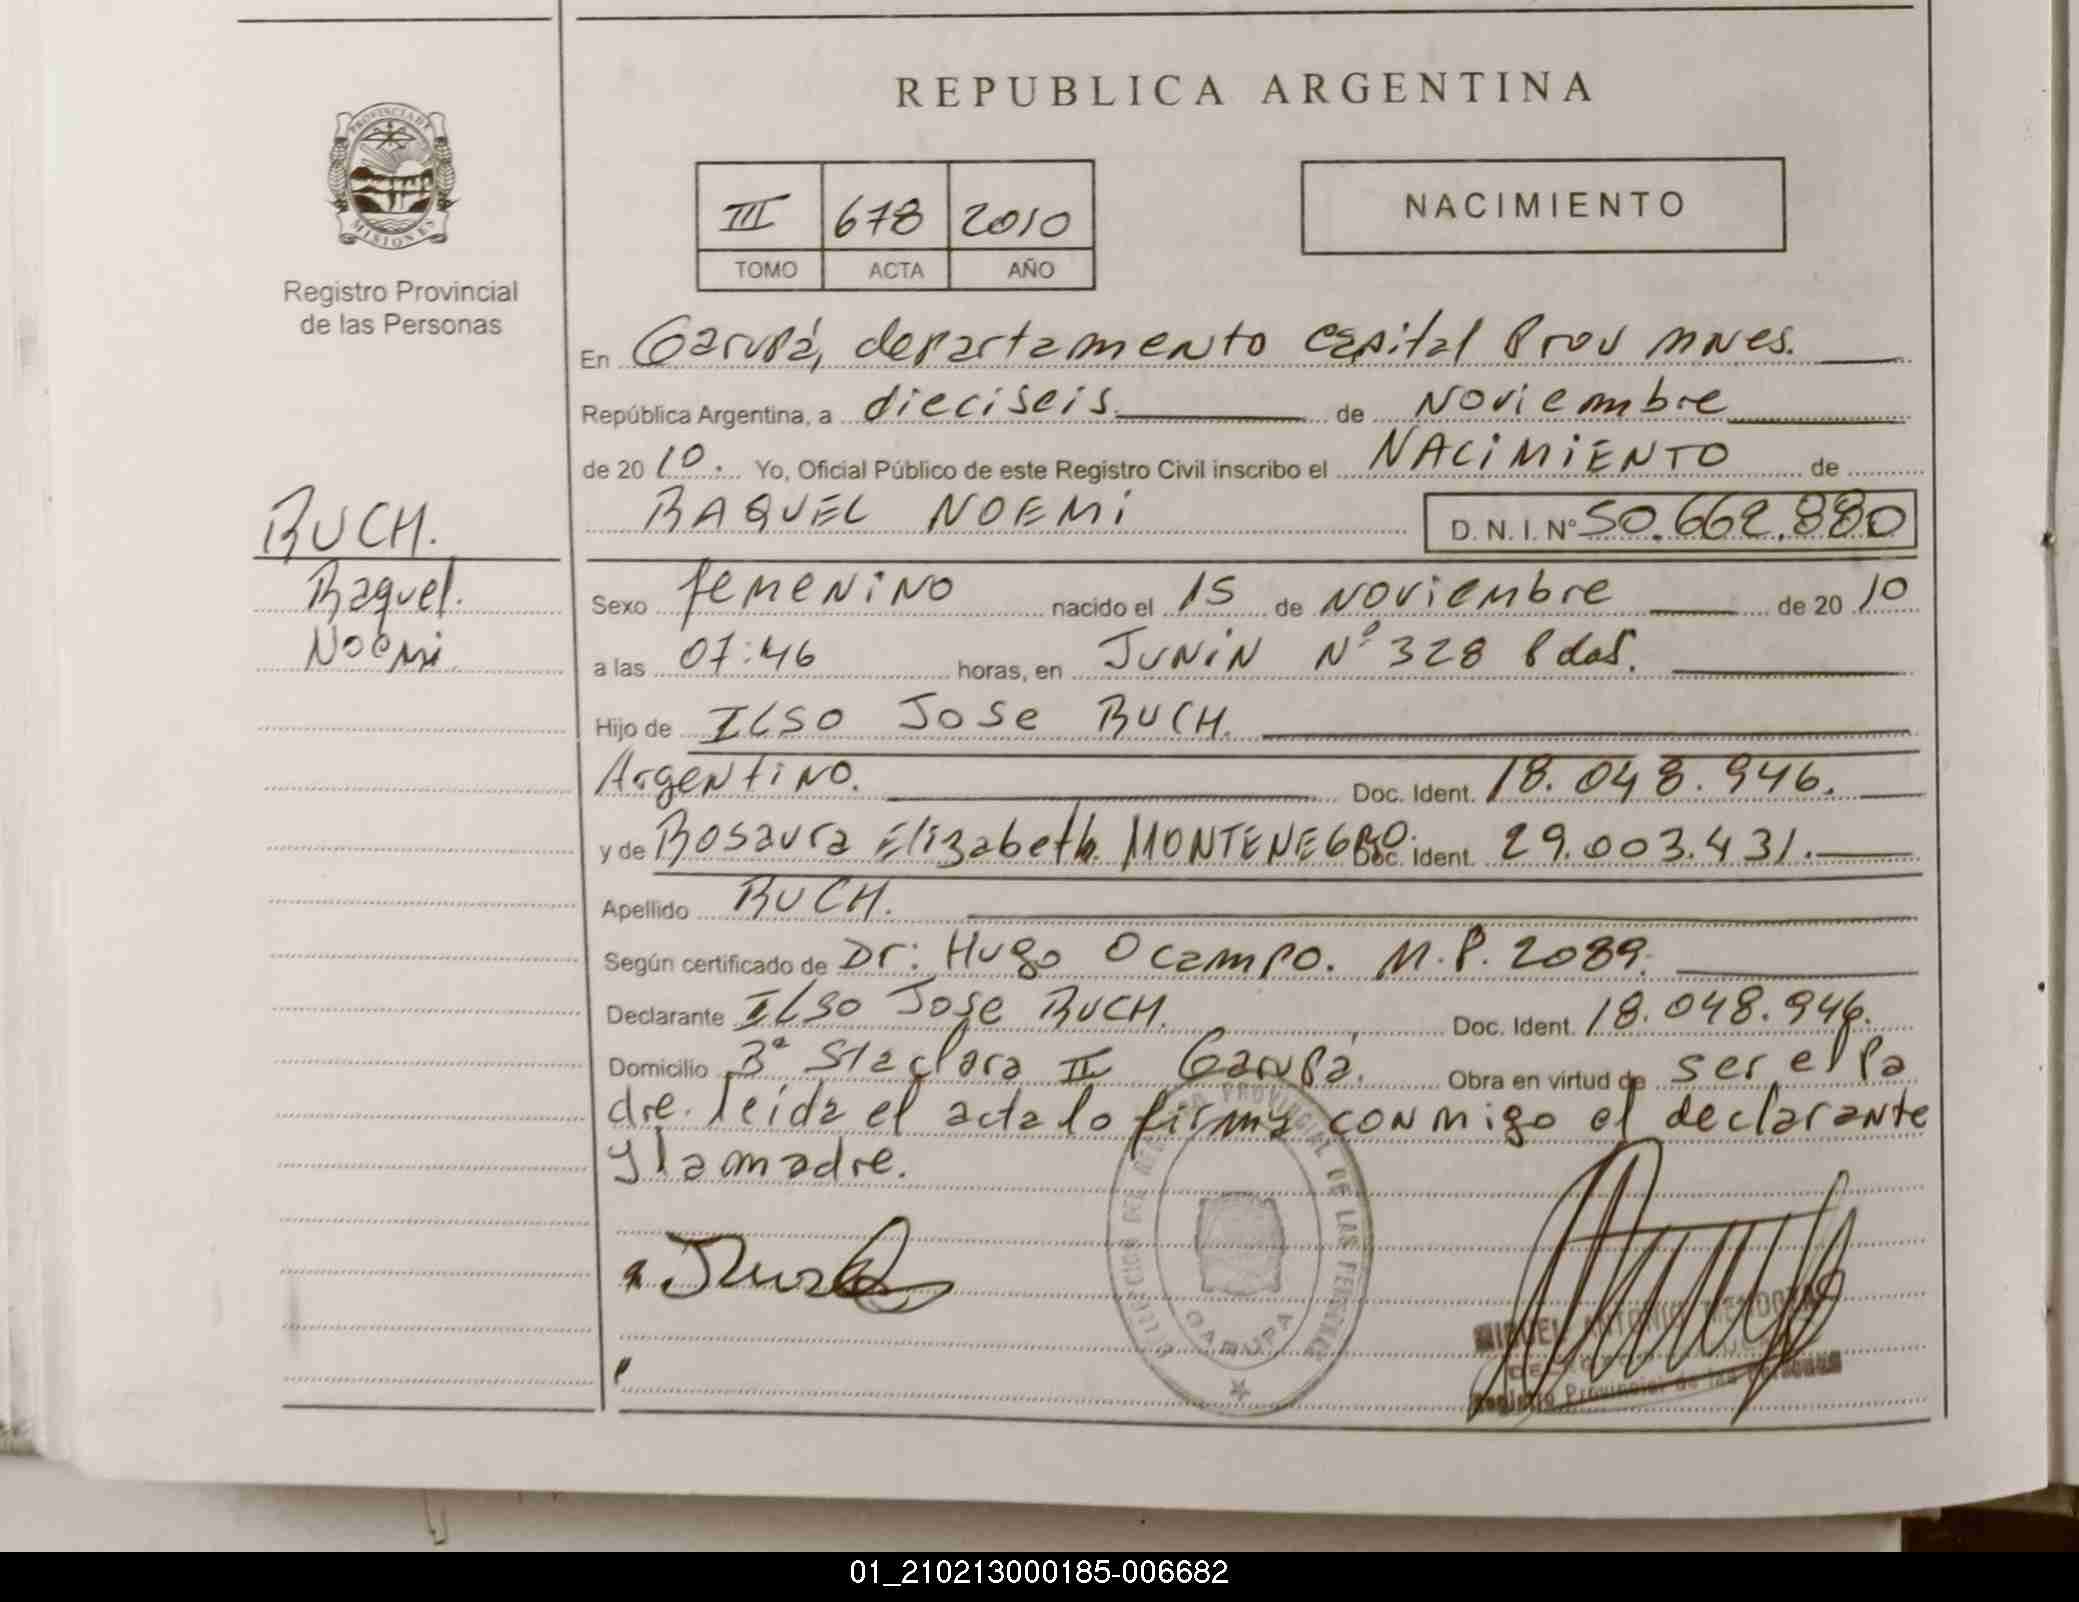 REPUBLICA ARGENTINA
PROVINCIA DE
MISIONES
Registro Provincial
de las Personas
III 678 2010
TOMO ACTA AÑO
NACIMIENTO
En Garupá, departamento capital Prov Mnes.
República Argentina, a dieciseis de Noviembre
de 20 10. Yo, Oficial Público de este Registro Civil inscribo el NACIMIENTO de
RAQUEL NOEMI D. N. I. Nº 50.662.880
RUCH.
Raquel.
Noemi
Sexo femenino nacido el 15 de Noviembre de 20 10
a las 07:46 horas, en JUNIN Nº 328 Pdas.
Hijo de ILSO JOSE RUCH.
Argentino. Doc. Ident. 18.048.946.
y de Rosaura Elizabeth. MONTENEGRO. Doc. Ident. 29.003.431.
Apellido RUCH.
Según certificado de Dr: Hugo Ocampo. M.P. 2089.
Declarante ILSO JOSE RUCH. Doc. Ident. 18.048.946.
Domicilio Bº Sta clara II Garupá. Obra en virtud de ser el Pa
dre. leida el acta lo firma conmigo el declarante
y la madre.
PROVINCIAL DE LAS PERSONAS
GARUPA
MIGUEL ANTONIO MENDOZA
Registro Provincial de las Personas
01_210213000185-006682